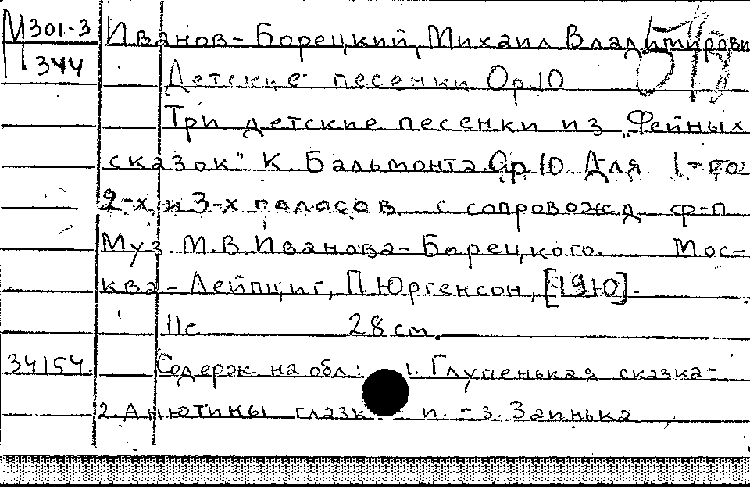 М 301-3 Иванов-Борецкий, Михаил Владимирович
344 Детские песенки Ор.10
Три детские песенки из „Фейных
сказок" К. Бальмонта Ор 10 Для 1-го
2-х и 3-х голосов с сопровожд ф-п
Муз М.В. Иванова-Борецкого. Мос-
ква-Лейпциг, П. Юргенсон, [1910].
11с 28 см.
34154 Содерж на обл: 1. Глупенькая сказка-
2. Анютины глазки - 3. Заинька